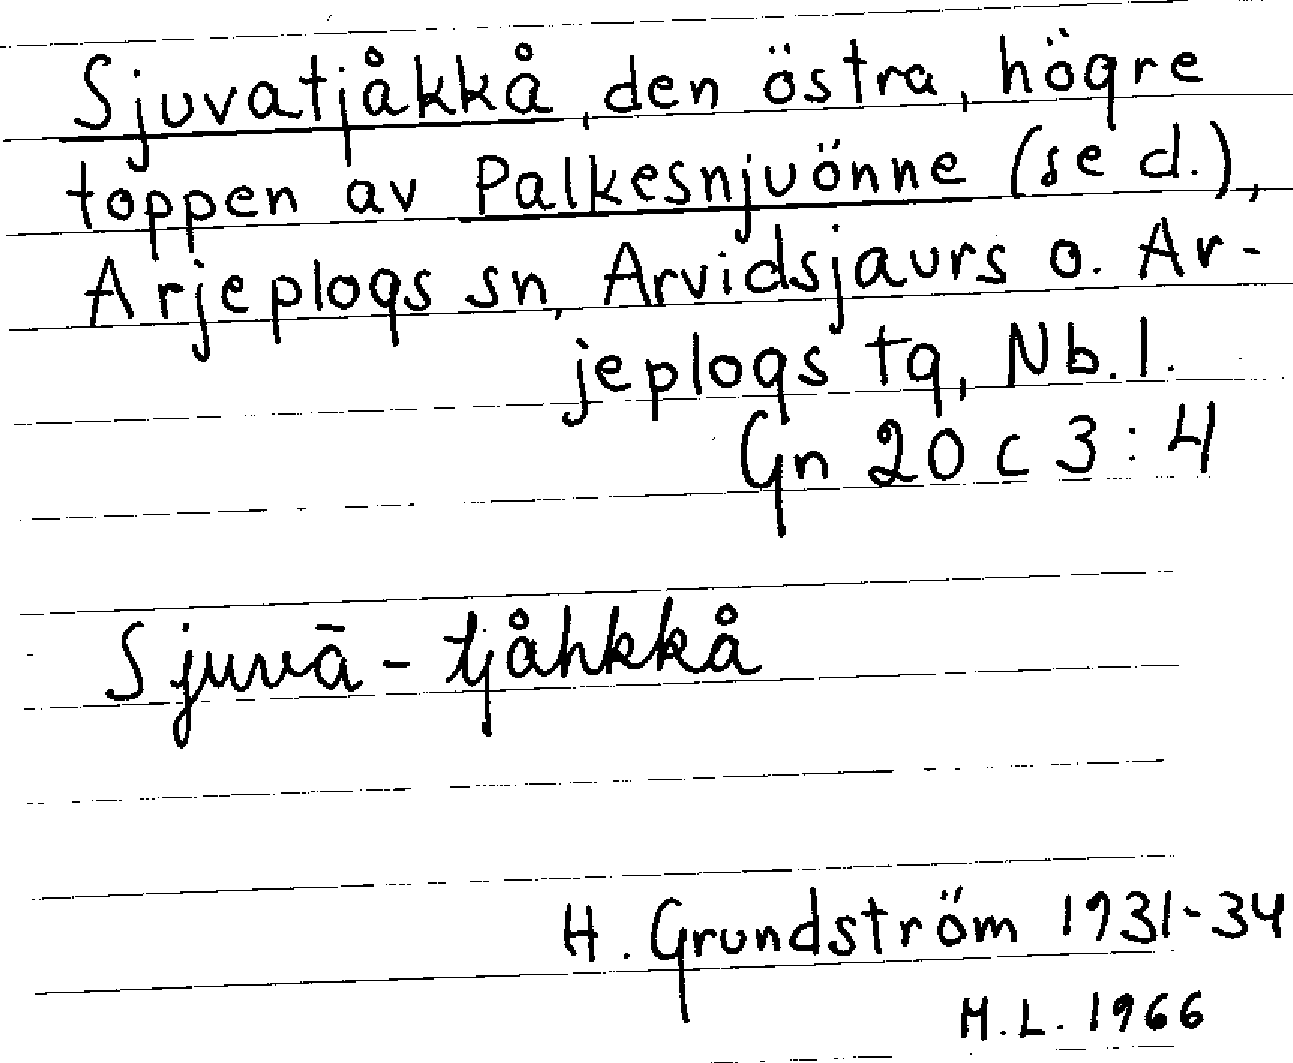 Sjuvatjåkkå, den östra, högre
toppen av Palkesnjuönne (se d.),
Arjeplogs sn, Arvidsjaurs o. Ar-
jeplogs tg, Nb. l.
Gn 20 c 3:4
Sjuvā-tjåhkkå
H. Grundström 1931-34
M.L. 1966